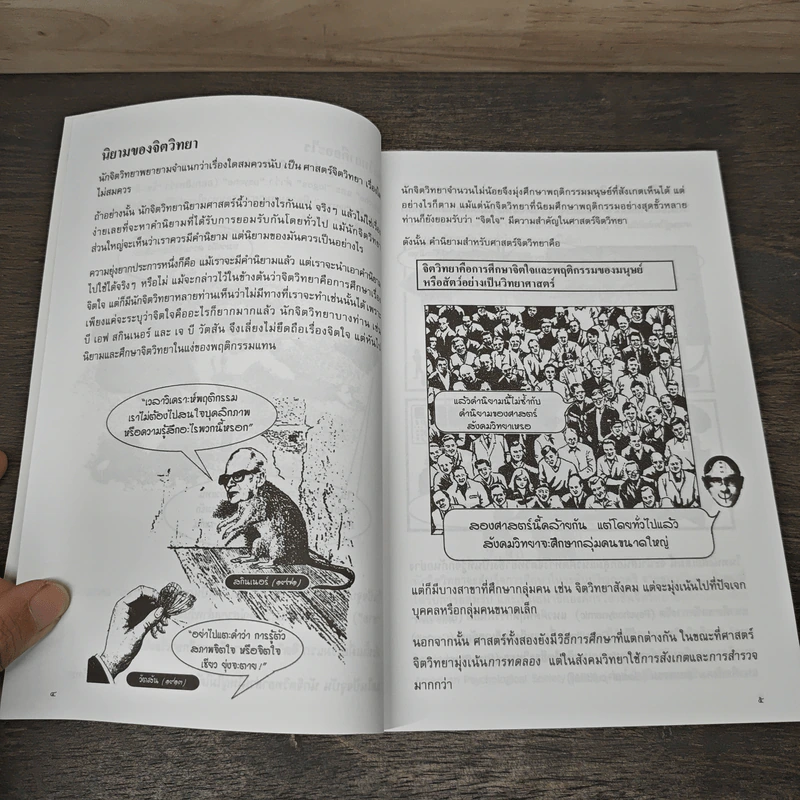 นิยามของจิตวิทยา
นักจิตวิทยาพยายามจำแนกว่าเรื่องใดสมควรนับ เป็น ศาสตร์จิตวิทยา
ไม่สมควร
ถ้าอย่างนั้น นักจิตวิทยานิยามศาสตร์นี้ว่าอย่างไรกันแน่ จริงๆ แล้วไม่ใช่
ง่ายเลยที่จะหาคำนิยามที่ได้รับการยอมรับกันโดยทั่วไป แม้นักจิตวิทยา
ส่วนใหญ่จะเห็นว่าเราควรมีคำนิยาม แต่นิยามของมันควรเป็นอย่างไร
ความยุ่งยากประการหนึ่งก็คือ แม้เราจะมีคำนิยามแล้ว แต่เราจะนำเอาคำนิยาม
ไปใช้ได้จริงๆ หรือไม่ แม้จะกล่าวไว้ในข้างต้นว่าจิตวิทยาคือการศึกษาเรื่อง
จิตใจ แต่ก็มีนักจิตวิทยาหลายท่านเห็นว่าไม่มีทางที่เราจะทำเช่นนั้นได้เพราะ
เพียงแค่จะระบุว่าจิตใจคืออะไรก็ยากมากแล้ว นักจิตวิทยาบางท่าน เช่น
บี เอฟ สกินเนอร์ และ เจ บี วัตสัน จึงเลี่ยงไม่ยึดถือเรื่องจิตใจ แต่หันไป
นิยามและศึกษาจิตวิทยาในแง่ของพฤติกรรมแทน
"เวลาวิเคราะห์พฤติกรรม
เราไม่ต้องไปสนใจบุคลิกภาพ
หรือความรู้สึกอะไรพวกนี้หรอก"
สกินเนอร์ (๑๙๗๑)
"อย่าไปแตะคำว่า การรู้ตัว
สภาพจิตใจ หรือจิตใจ
เชียว ยุ่งจะตาย!"
วัตสัน (๑๙๑๓)
๔
นักจิตวิทยาจำนวนไม่น้อยจึงมุ่งศึกษาพฤติกรรมมนุษย์ที่สังเกตเห็นได้ แต่
อย่างไรก็ตาม แม้แต่นักจิตวิทยาที่นิยมศึกษาพฤติกรรมอย่างสุดขั้วหลาย
ท่านก็ยังยอมรับว่า "จิตใจ" มีความสำคัญในศาสตร์จิตวิทยา
ดังนั้น คำนิยามสำหรับศาสตร์จิตวิทยาคือ
จิตวิทยาคือการศึกษาจิตใจและพฤติกรรมของมนุษย์
หรือสัตว์อย่างเป็นวิทยาศาสตร์
แล้วคำนิยามนี้ไม่ซ้ำกับ
คำนิยามของศาสตร์
สังคมวิทยาเหรอ
สองศาสตร์นี้คล้ายกัน แต่โดยทั่วไปแล้ว
สังคมวิทยาจะศึกษากลุ่มคนขนาดใหญ่
แต่ก็มีบางสาขาที่ศึกษากลุ่มคน เช่น จิตวิทยาสังคม แต่จะมุ่งเน้นไปที่ปัจเจก
บุคคลหรือกลุ่มคนขนาดเล็ก
นอกจากนั้น ศาสตร์ทั้งสองยังมีวิธีการศึกษาที่แตกต่างกัน ในขณะที่ศาสตร์
จิตวิทยามุ่งเน้นการทดลอง แต่ในสังคมวิทยาใช้การสังเกตและการสำรวจ
มากกว่า
๕